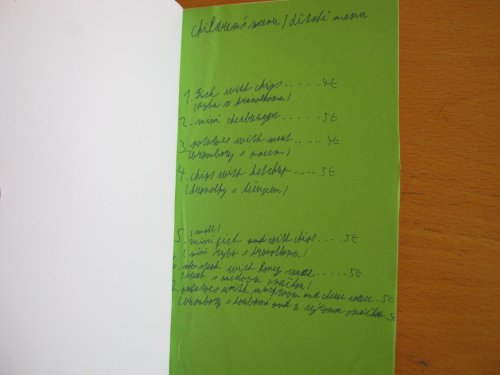 children's menu / dětské menu
1. Fish with chips ..... 4€
(ryba s hranolkama)
2. mini cheeseburger ..... 5€
3. potatoes with meat ..... 4€
(brambory s masem)
4. chips with ketchup ..... 5€
(hranolky s kečupem)
5. (small)
mini fish and with chips .... 5€
(mini ryba s hranolkama)
steak with honey sauce .... 5€
(steak s omáčkou)
potatoes with mushroom and cheese sauce . 5€
(brambory s houbami and a sýrovou omáčkou 5€